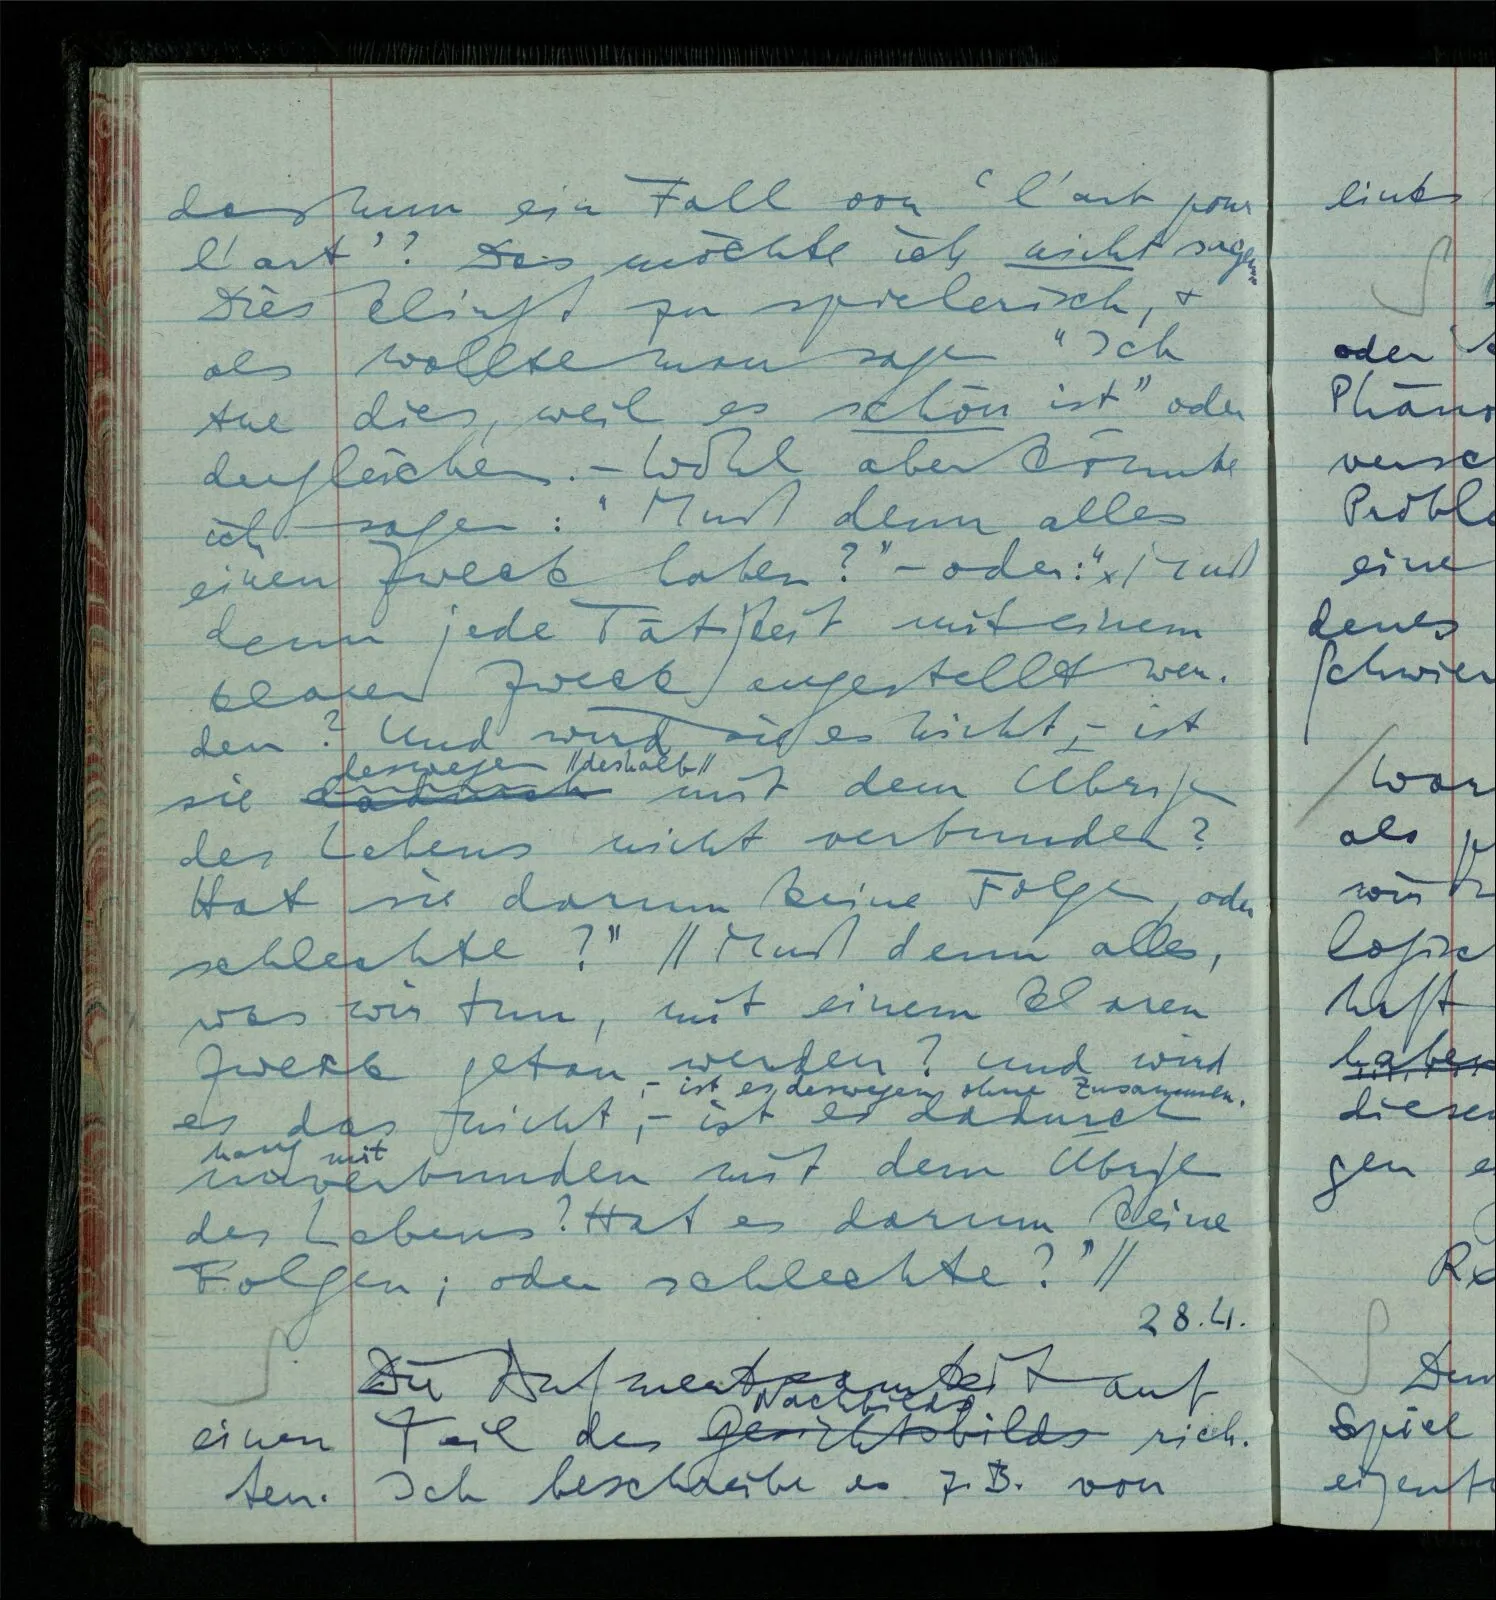 das nun ein Fall von ‘l'art pour
l'art’? Das möchte ich nicht sagen
Dies klingt zu spielerisch, +
als wollte man sagen “Ich
tue dies, weil es schön ist” oder
dergleichen. – Wohl aber könnte
ich sagen: “Muß denn alles
einen Zweck haben?” – oder: “Muß
denn jede Tätigkeit mit einem
klaren Zweck angestellt wer-
den? Und wird sie es nicht, – ist
deswegen //deshalb//
sie dadurch mit dem Übrigen
des Lebens nicht verbunden?
Hat sie darum keine Folgen, oder
schlechte?” // Muß denn alles,
was wir tun, mit einem klaren
Zweck getan werden? Und wird
– ist es deswegen ohne Zusammen-
es das nicht, – ist es dadurch
hang mit
unverbunden mit dem Übrigen
des Lebens? Hat es darum keine
Folgen; oder schlechte?” //
28.4.
Die Aufmerksamkeit auf
Nachbilds
einen Teil des Gesichtsbilds rich-
ten. Ich beschreibe es z.B. von
links
oder
Phäno
versc
Proble
eine
denes
schwier
War
als p
wir
logisc
haft
haben
diesen
gen e
Rx
Den
Spiel
eigent